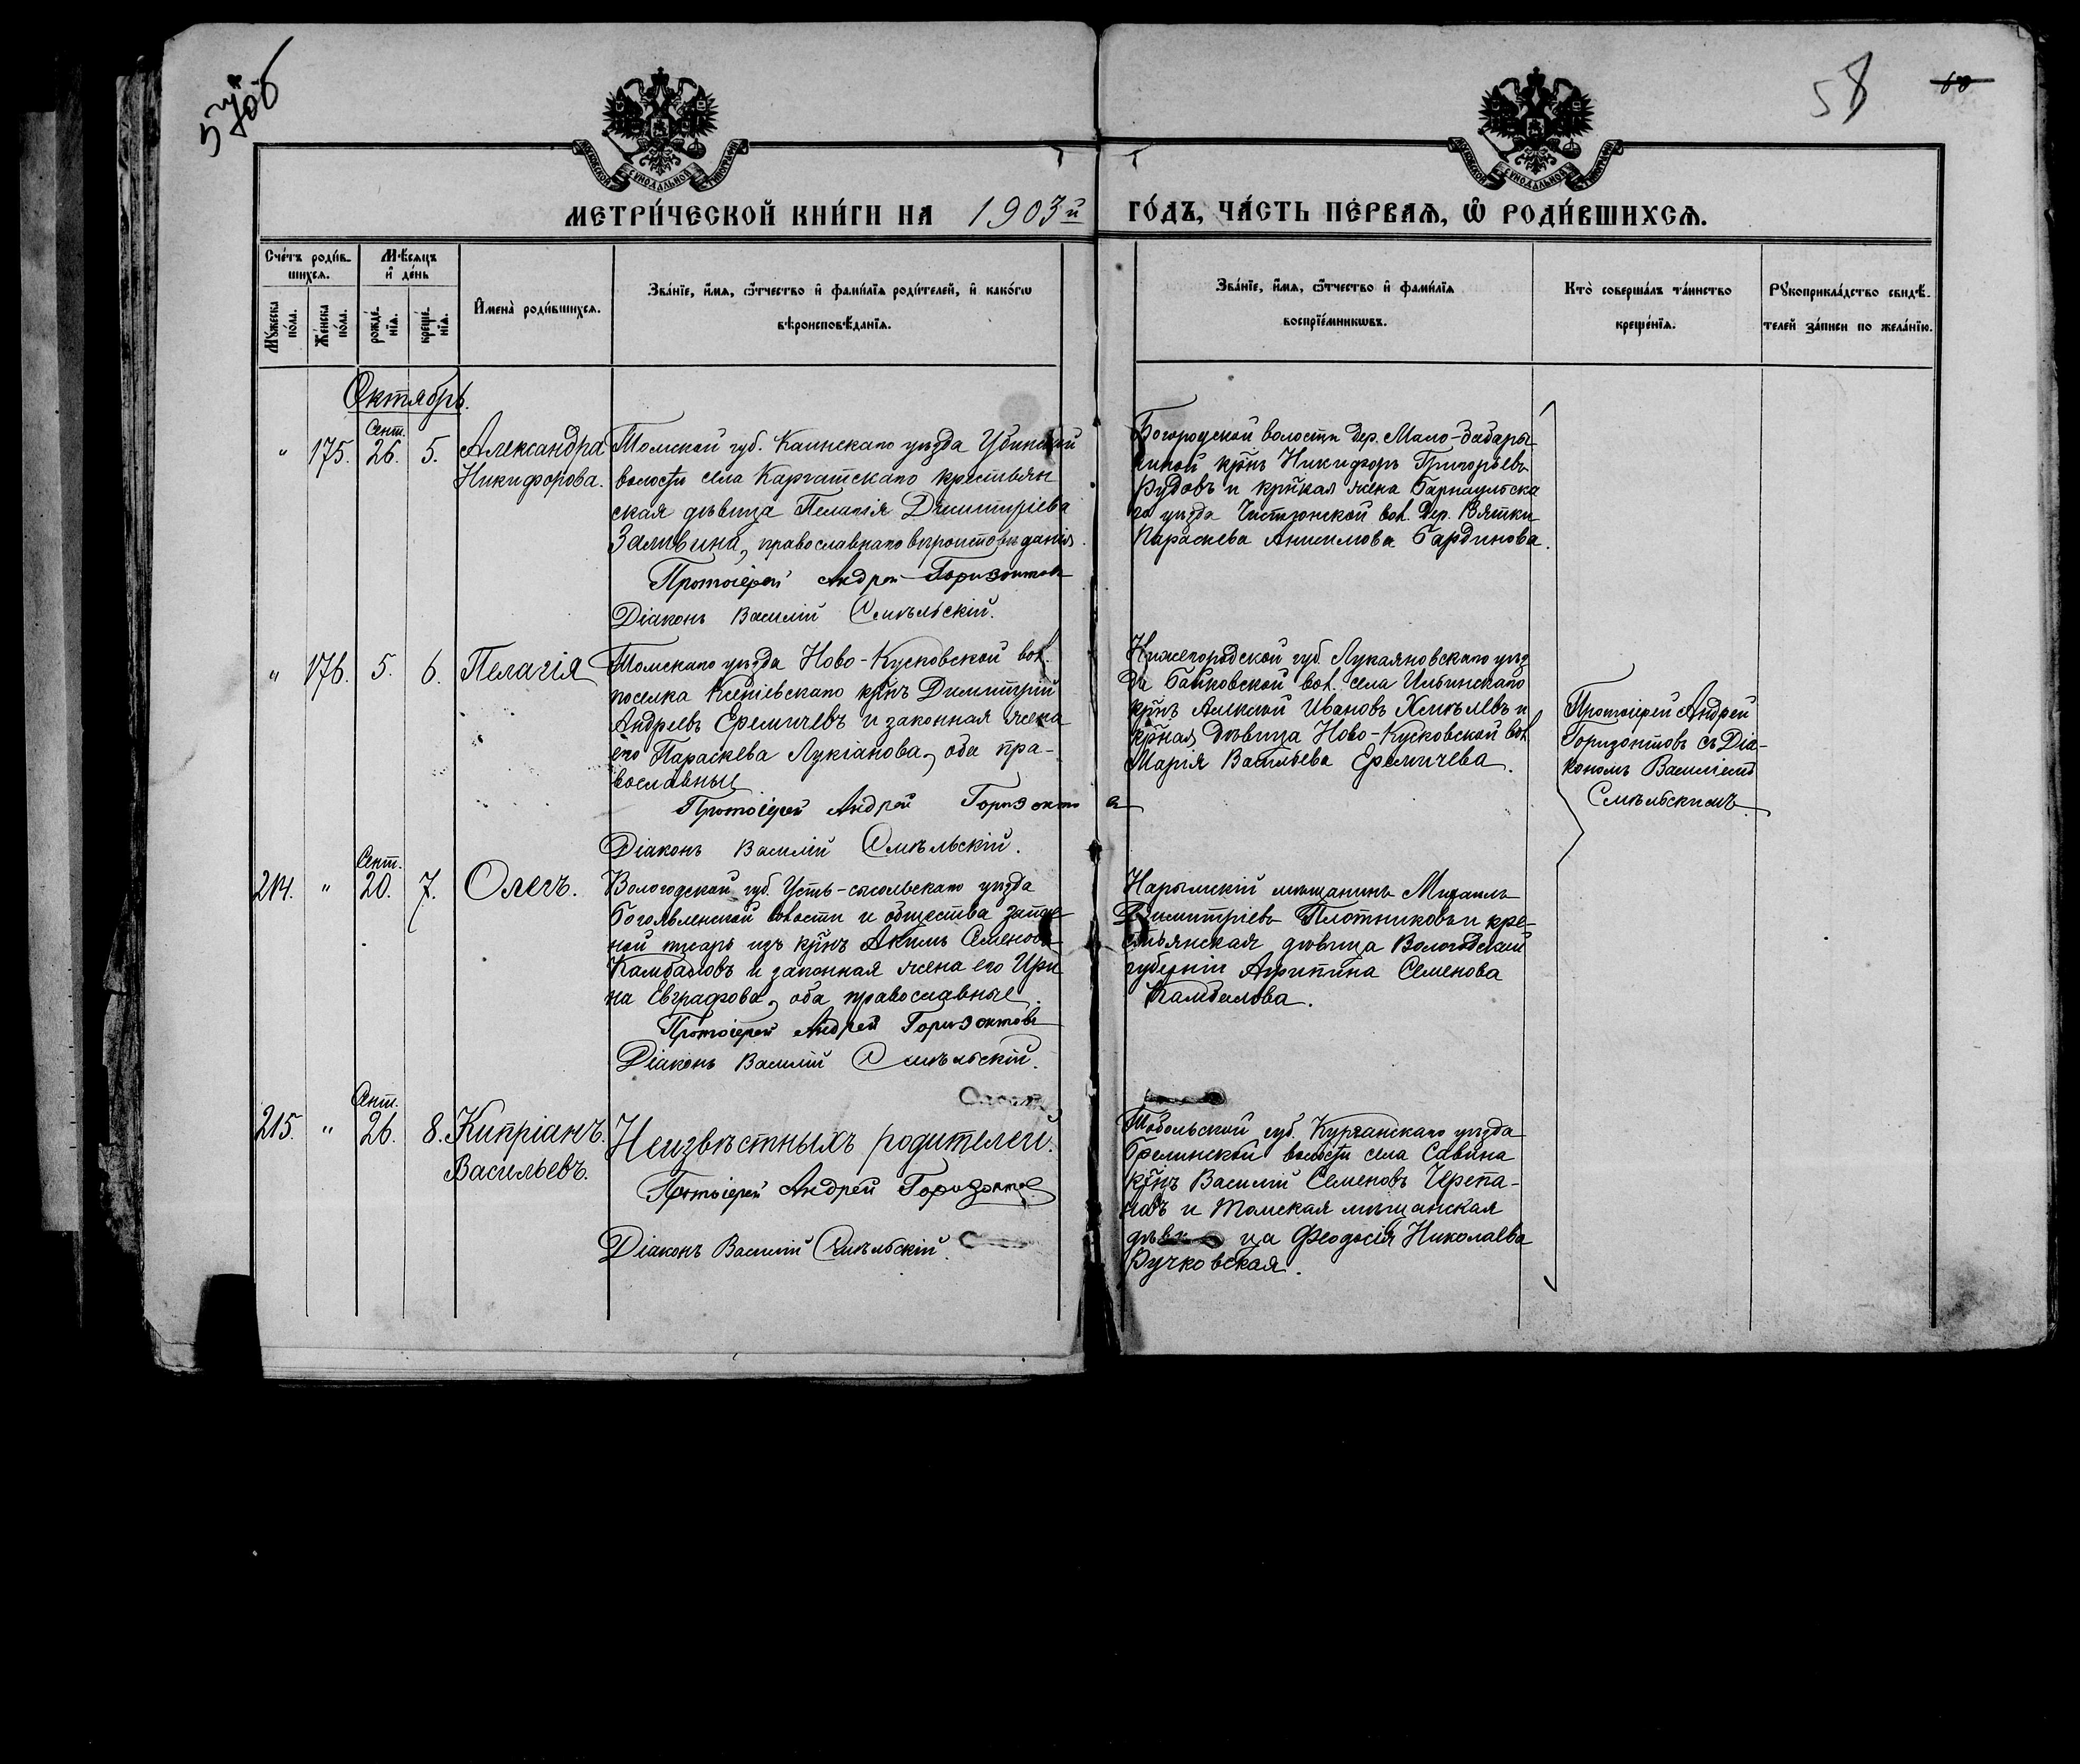 57 об
58
60
МОСКОВСКОЙ СУНОДАЛЬНОЙ ТИПОГРАФІИ
МОСКОВСКОЙ СУНОДАЛЬНОЙ ТИПОГРАФІИ
МЕТРИ́ЧЕСКОЙ КНИ́ГИ НА 1903й
ГО́ДЪ, ЧА́СТЬ ПЕ́РВАЯ, Ѽ РОДИ́ВШИХСЯ.
Сче́тъ роди́в-
шихся.
Мѣ́сяцъ
и҆ де́нь
Мꙋ́жеска по́ла.
Же́нска по́ла.
рожде́-
нїя.
креще́-
нїя.
И҆мена̀ роди́вшихся.
Зва́нїе, и҆́мя, ѻ҆́тчество и҆ фами́лїя роди́телей, и҆ како́гѡ
вѣроисповѣ́данїя.
Зва́нїе, и҆́мя, ѻ҆́тчество и҆ фами́лїя
воспрїе́мникѡвъ.
Кто̀ соверша́лъ та́инство
креще́нїя.
Рꙋкоприкла́дство свидѣ́-
телей за́писи по жела́нїю.
Октябрь.
Сент.
" 175. 26. 5. Александра
Никифорова.
Томской губ. Каинскаго уѣзда Убинской
волости села Каргатскаго крестьян
ская дѣвица Пелагія Димитріева
Заливина, православнаго вѣроисповѣданія.
Протоіерей Андрей Горизонтовъ
Діаконъ Василій Смѣльскій.
Богородской волости дер. Мало-
киной крнъ Никифоръ Григорьевъ
Рудовъ и кръская жена Барнаульска
го уѣзда Чистюнской вол. дер. Вятки
Параскева Анисимова Бардинова.
" 176. 5. 6. Пелагія
Томскаго уѣзда Ново-Кусковской вол.
поселка Ксеніевскаго крнъ Димитрій
Андреевъ Еремичевъ и законная жена
его Параскева Лукіанова, оба пра-
вославные
Протоіерей Андрей Горизонтов
Діаконъ Василій Смѣльскій.
Нижегородской губ. Лукояновскаго уѣз
да Байковской вол. села Ильинскаго
крнъ Алексій Ивановъ и
крная дѣвица Ново-Кусковской вол
Марія Васильева Еремичева.
Протоіерей Андрей
Горизонтовъ съ Діа-
кономъ Василіемъ
Смѣльскимъ.
Сент.
214. " 20. 7. Олегъ.
Вологодской губ. Усть-сысольскаго уѣзда
Богоявленской волости и общества запас
ной писарь изъ крнъ Акимъ Семеновъ
Камбаловъ и законная жена его Ири
на Евграфова, оба православные.
Протоіерей Андрей Горизонтовъ
Діаконъ Василій Смѣльскій.
Нарымскій мѣщанинъ Михаилъ
Димитріевъ Плотниковъ и кре-
стьянская дѣвица Вологодской
губерніи Агрипина Семенова
Камбалова.
Сент.
215. " 26. 8. Кипріанъ
Васильевъ.
Неизвѣстныхъ родителей.
Протоіерей Андрей Горизонтов
Діаконъ Василій Смѣльскій.
Тобольской губ. Курганскаго уѣзда
волости села Савина
крнъ Василій Семеновъ Черепа-
новъ и Томская мѣщанская
дѣви ца Феодосія Николаева
Ручковская.